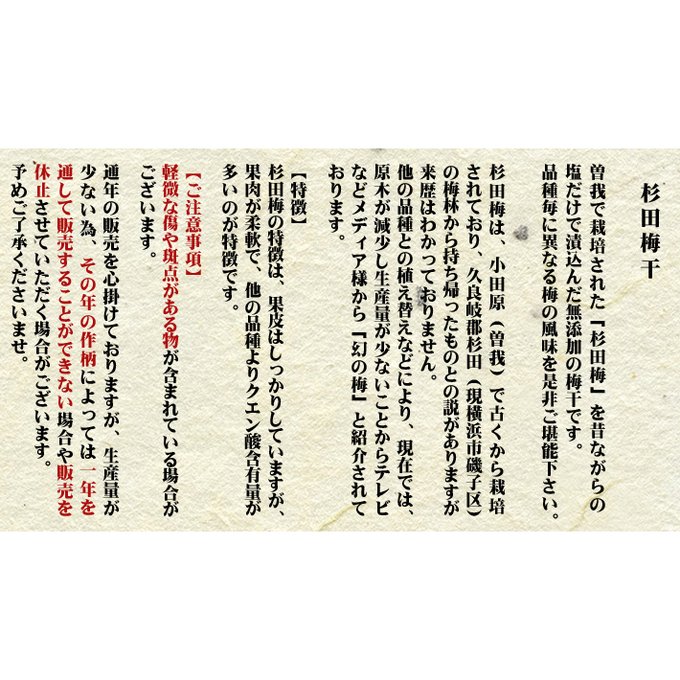 杉田梅干
曽我で栽培された『杉田梅』を昔ながらの
塩だけで漬込んだ無添加の梅干です。
品種毎に異なる梅の風味を是非ご堪能下さい。
杉田梅は、小田原(曽我)で古くから栽培
されており、久良岐郡杉田(現横浜市磯子区)
の梅林から持ち帰ったものとの説がありますが
来歴はわかっておりません。
他の品種との植え替えなどにより、現在では、
原木が減少し生産量が少ないことからテレビ
などメディア様から『幻の梅』と紹介されて
おります。
【特徴】
杉田梅の特徴は、果皮はしっかりしていますが、
果肉が柔軟で、他の品種よりクエン酸含有量が
多いのが特徴です。
【ご注意事項】
軽微な傷や斑点がある物が含まれている場合が
ございます。
通年の販売を心掛けておりますが、生産量が
少ない為、その年の作柄によっては一年を
通して販売することができない場合や販売を
休止させていただく場合がございます。
予めご了承くださいませ。